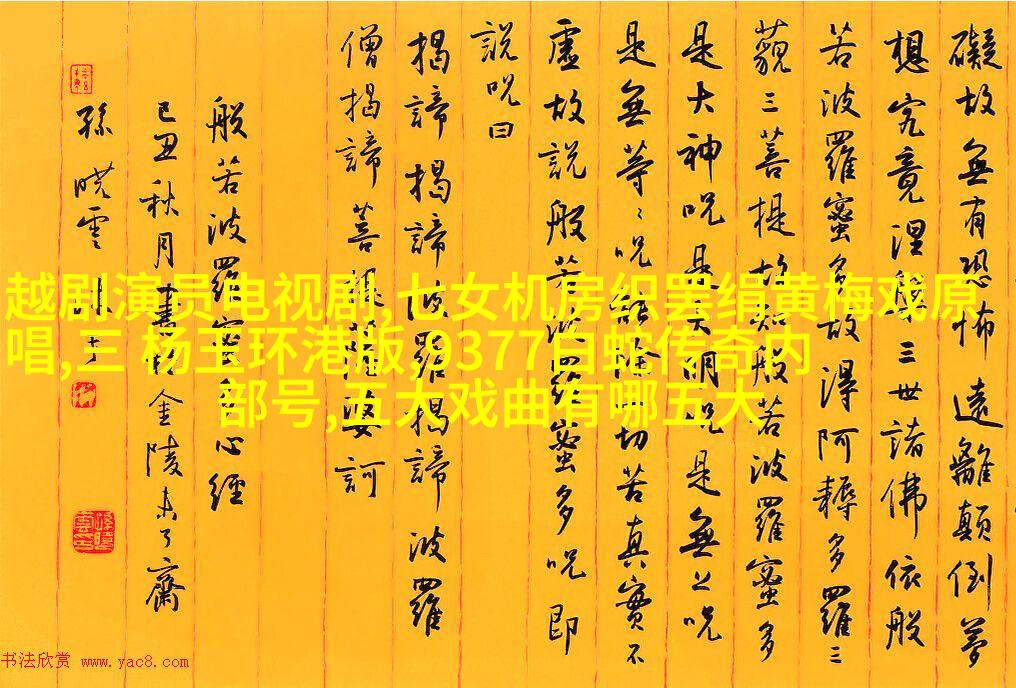 礙故無有恐怖遠離顛倒夢
想究竟涅槃三世諸佛依般
若波羅蜜多故得阿耨多羅三
藐三菩提故知般若波羅蜜多
是大神呪是大明呪是無上呪
是無等〻呪能除一切苦真實不
虛故說般若波羅蜜多呪即
說呪曰
揭諦揭諦波羅揭諦波羅
僧揭諦菩提薩婆訶
般若波羅蜜多心經
己丑秋月書於金陵未了齋
孫曉雲
越剧演员电视剧,七女机房织罢绢黄梅戏原
唱,三 杨玉环港版,9377白蛇传奇内
部号,五大戏曲有哪五大
书法欣赏 www.yac8.com